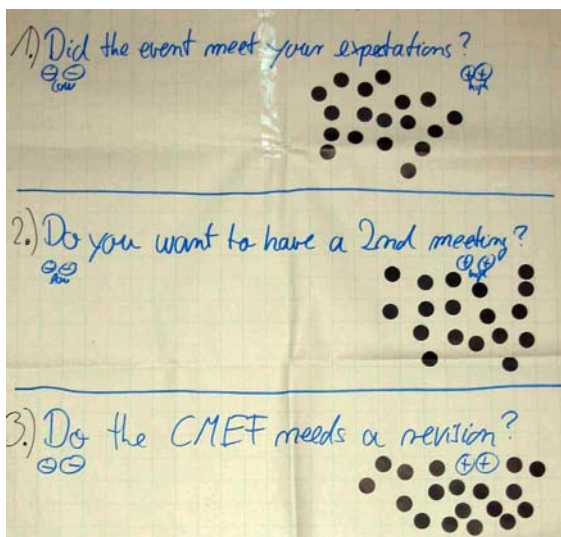 1.) Did the event meet your expetations?
⊖⊖ ⊕⊕
low high
2.) Do you want to have a 2nd meeting?
⊖⊖ ⊕⊕
low high
3.) Do the CMEF needs a revision?
⊖⊖ ⊕⊕